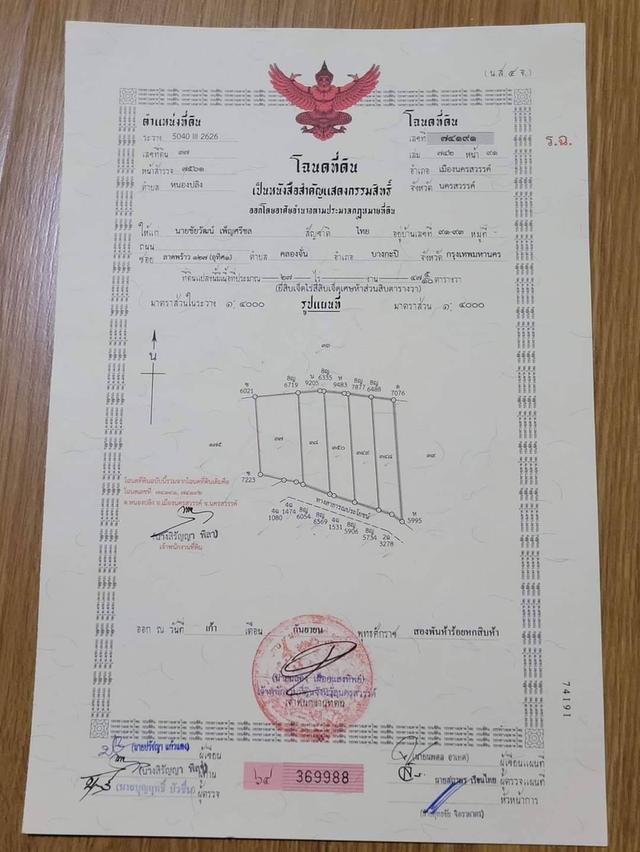 (น.ส. ๔ จ.)
ตำแหน่งที่ดิน
ระวาง 5040 III 2626
เลขที่ดิน ๓๗
หน้าสำรวจ ๗๕๖๑
ตำบล หนองปลิง
โฉนดที่ดิน
เลขที่ ๗๔๑๙๑
เล่ม ๗๔๒ หน้า ๙๑
อำเภอ เมืองนครสวรรค์
จังหวัด นครสวรรค์
ร.ฉ.
โฉนดที่ดิน
เป็นหนังสือสำคัญแสดงกรรมสิทธิ์
ออกโดยอาศัยอำนาจตามประมวลกฎหมายที่ดิน
ให้แก่ นายชัยวัฒน์ เพ็ญศรีชล สัญชาติ ไทย อยู่บ้านเลขที่ ๙๑-๙๓ หมู่ที่
ถนน
ซอย ลาดพร้าว ๑๒๗ ตำบล คลองจั่น อำเภอ บางกะปิ จังหวัด กรุงเทพมหานคร
ที่ดินแปลงนี้มีเนื้อที่ประมาณ ๒๗ ไร่ - งาน ๔๗ ๕/๑๐ ตารางวา
(ยี่สิบเจ็ดไร่สี่สิบเจ็ดเศษห้าส่วนสิบตารางวา)
มาตราส่วนในระวาง ๑:๔๐๐๐ รูปแผนที่ มาตราส่วน ๑:๔๐๐๐
น
6021 6719 9205 6335 9483 7877 6488 7076
๓๗ ๓๘ ๓๕๐ ๓๔๙ ๓๔๘ ๓๙
๑๗๕
7223
ทางสาธารณประโยชน์
1080 1474 6054 6569 1531 5906 5734 3278 5995
โฉนดที่ดินฉบับนี้รวมจากโฉนดที่ดินเดิมคือ
โฉนดเลขที่
ต.หนองปลิง อ.เมืองนครสวรรค์ จ.นครสวรรค์
(นางสิรัญญา พิลา)
เจ้าพนักงานที่ดิน
ออก ณ วันที่ เก้า เดือน กันยายน พุทธศักราช สองพันห้าร้อยหกสิบห้า
เจ้าพนักงานที่ดิน
74191
ผู้เขียน
(นางสิรัญญา พิลา) ผู้ทาน
ผู้ตรวจ
๖๔ 369988
ผู้เขียนแผนที่
ผู้ตรวจแผนที่
หัวหน้าการ